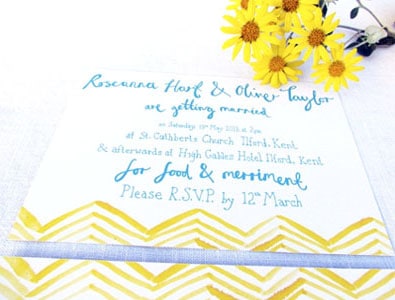 Roseanna Hart & Oliver Taylor
are getting married
on Saturday, 19th May 2012 at 2pm
at St. Cuthberts Church Ilford, Kent
& afterwards at High Gables Hotel Ilford, Kent
for food & merriment
Please R.S.V.P. by 12th March